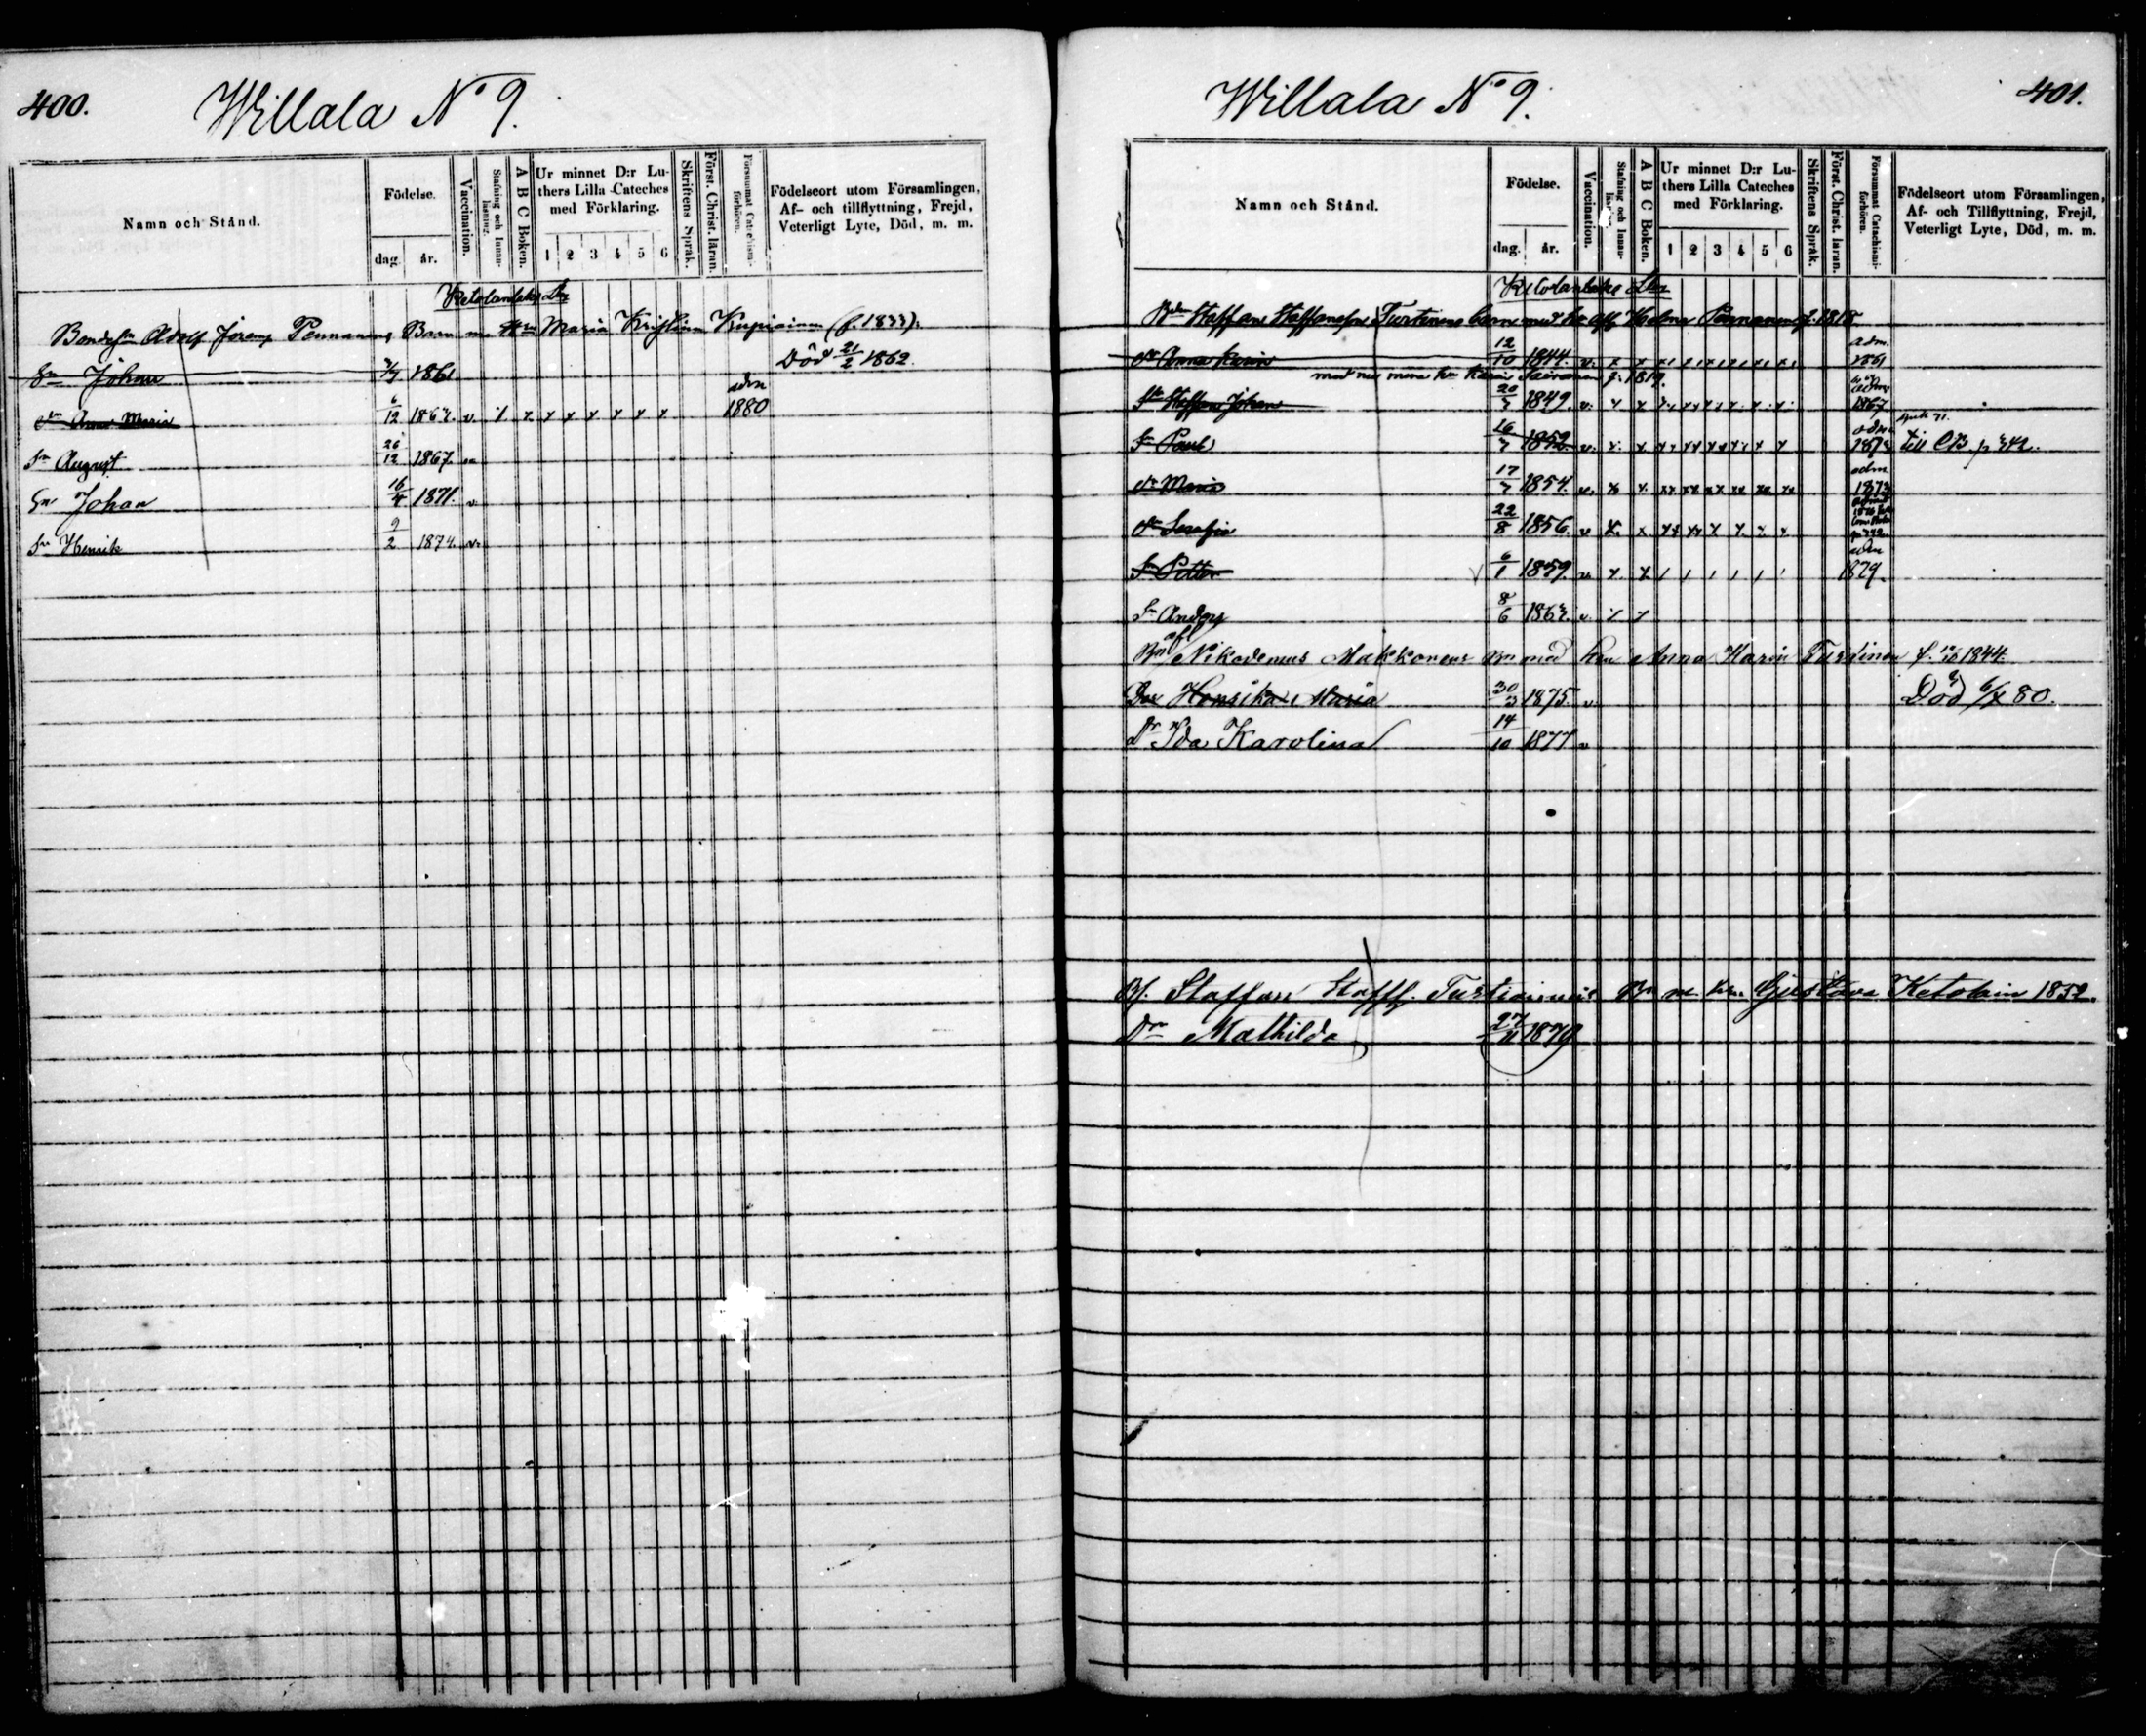 400.
Willala No 9.
Namn och Stånd.
Födelse.
dag.
år.
Vaccination.
Stafning och Innan-läsning.
A B C Boken.
Ur minnet D:r Lu-
thers Lilla Cateches
med Förklaring.
1 2 3 4 5 6
Skriftens Språk.
Först. Christ. läran.
Försummat Catechismi-förhören.
Födelseort utom Församlingen,
Af- och tillflyttning, Frejd,
Veterligt Lyte, Död, m. m.
Adolf Pennanens Barn m Hu Maria Kristina (f. 1833).
Sn Johan 1861 Död 21/2 1862.
dr Anna Maria 6/12 v. x x x x x x x adm 1880
Sn August 26/12 1867. v
Sn Johan 16/4 1871. v
Sn Henrik 9/2 1874. v.
401.
Willala No 9.
Namn och Stånd.
Födelse.
dag.
år.
Vaccination.
Stafning och Innan-läsning.
A B C Boken.
Ur minnet D:r Lu-
thers Lilla Cateches
med Förklaring.
1 2 3 4 5 6
Skriftens Språk.
Först. Christ. läran.
Försummat Catechismi-förhören.
Födelseort utom Församlingen,
Af- och Tillflyttning, Frejd,
Veterligt Lyte, Död, m. m.
Staffan Turtinens barn med Helena Pennanen f. 1818
dr Anna Karin 12/10 1844. v. x x adm. 1861
med f. 1819.
Sn Staffan Johan 20/7 1849. v. x x adm 1867
Sn Paul 16/7 1852. v. x. x adm till CB. p 342.
dr Maria 17/7 1854. v. x x adm 1873
dr Serafia 22/8 1856. v x. x
Sn Petter 6/1 1859. v x x adm 1879.
Sn 8/6 v.
afl
Bn Nikodemus Makkonens Bn med hu Anna Karin Turtinen f. 12/10 1844.
Dr Henrika Maria 30/3 1875. v Död 80.
Dr Ida Karolina 14/10 1877 v
Bf. Staffan Staffs. Turtiainens Bn m hu. Gustava Ketolain 1852.
Dr Mathilda 27/11 1879